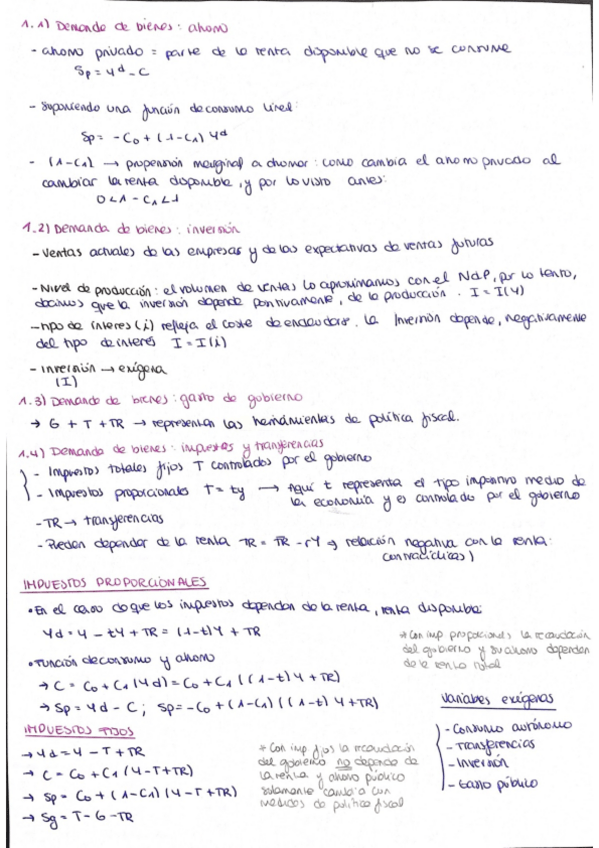 1.1) Demanda de bienes: ahorro
- ahorro privado = parte de la renta disponible que no se consume
Sp = Yd - C
- Suponiendo una función de consumo lineal:
Sp = -C0 + (1-C1) Yd
- (1-C1) → propensión marginal a ahorrar: como cambia el ahorro privado al
cambiar la renta disponible, y por lo visto antes:
0 < 1 - C1 < 1
1.2) Demanda de bienes: inversión
- Ventas actuales de las empresas y de las expectativas de ventas futuras
- Nivel de producción: el volumen de ventas lo aproximamos con el Nd P, por lo tanto,
decimos que la inversión depende positivamente, de la producción. I = I(Y)
- tipo de interes (i) refleja el coste de endeudarse. La Inversión depende, negativamente
del tipo de interés I = I(i)
- Inversión → exógena
(I)
1.3) Demanda de bienes: gasto de gobierno
→ G + T + TR → representan las herramientas de política fiscal.
1.4) Demanda de bienes: impuestos y transferencias
- Impuestos totales fijos T controlados por el gobierno
- Impuestos proporcionales T = ty → Aquí t representa el tipo impositivo medio de
la economía y es controlado por el gobierno
- TR → transferencias
- Pueden depender de la renta TR = TR - rY ⇒ relación negativa con la renta:
contracíclicas)
IMPUESTOS PROPORCIONALES
• En el caso de que los impuestos dependan de la renta, renta disponible:
Yd = Y - tY + TR = (1-t)Y + TR
* Con imp proporcionales la recaudación
del gobierno y su ahorro dependen
de la renta total
• Función de consumo y ahorro
→ C = C0 + C1 (Yd) = C0 + C1 ((1-t) Y + TR)
→ Sp = Yd - C ; Sp = -C0 + (1-C1) ((1-t) Y + TR)
Variables exógenas
- Consumo autónomo
- Transferencias
- Inversión
- Gasto público
IMPUESTOS FIJOS
→ Yd = Y - T + TR
→ C = C0 + C1 (Y - T + TR)
→ Sp = C0 + (1-C1) (Y - T + TR)
→ Sg = T - G - TR
* Con imp. fijos la recaudación
del gobierno no depende de
la renta y ahorro público
solamente cambia con
medidas de política fiscal